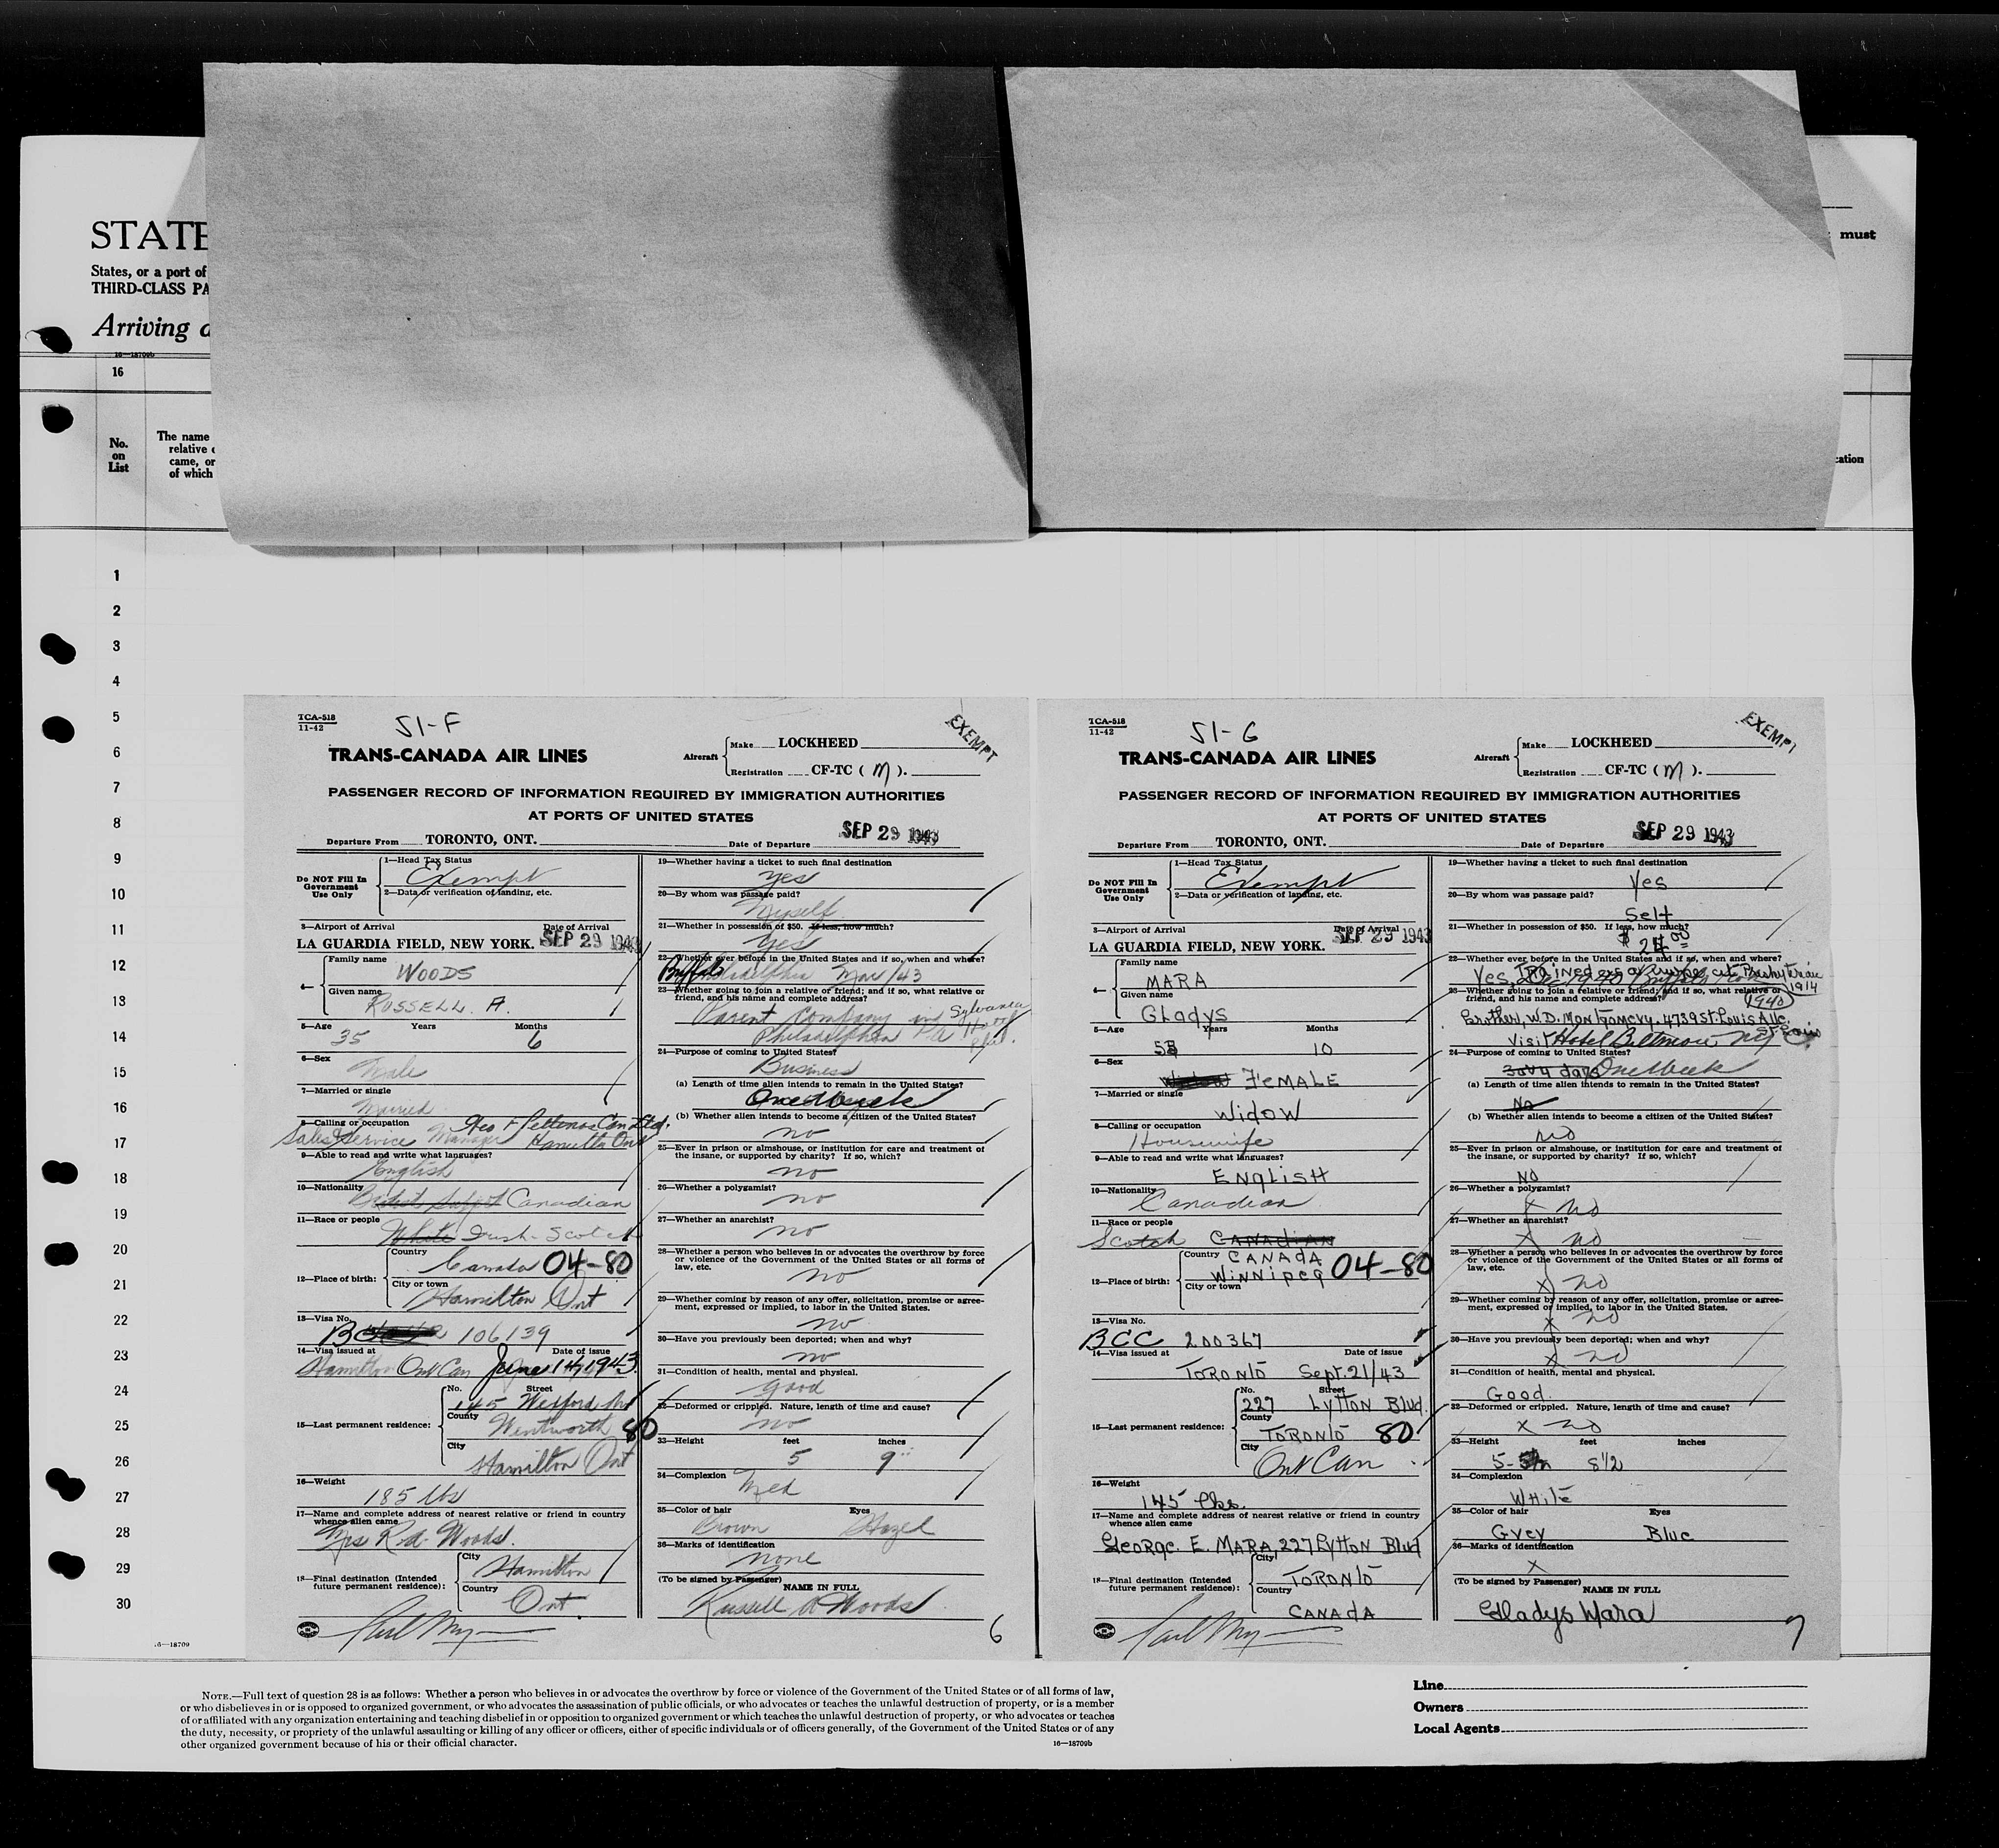 STATE
States, or a port of
THIRD-CLASS PA
Arriving a
16—18709b
16
must
No.
on
List
The name
relative
came, or
of which
ation
1
2
3
4
5
6
7
8
9
10
11
12
13
14
15
16
17
18
19
20
21
22
23
24
25
26
27
28
29
30
16—18709
TCA-518
11-42
51-F
EXEMPT
TRANS-CANADA AIR LINES
Aircraft
Make LOCKHEED
Registration CF-TC (M).
PASSENGER RECORD OF INFORMATION REQUIRED BY IMMIGRATION AUTHORITIES
AT PORTS OF UNITED STATES
Departure From TORONTO, ONT.
Date of Departure SEP 29 1943
Do NOT Fill In
Government
Use Only
1—Head Tax Status
Exempt
2—Data or verification of landing, etc.
3—Airport of Arrival Date of Arrival
LA GUARDIA FIELD, NEW YORK. SEP 29 1943
4—
Family name
WOODS
Given name
RUSSELL. A.
5—Age Years Months
35 6
6—Sex
Male
7—Married or single
Married
8—Calling or occupation
Sales & Service Manager
9—Able to read and write what languages?
English
10—Nationality
Canadian
11—Race or people
White Irish-Scotch
12—Place of birth:
Country
Canada 04-80
City or town
Hamilton Ont
13—Visa No.
106139
14—Visa issued at Date of issue
Hamilton Ont Can June 14, 1943
15—Last permanent residence:
No. Street
145
County
Wentworth 80
City
Hamilton Ont
16—Weight
185 lbs
17—Name and complete address of nearest relative or friend in country
whence alien came
Mrs R. A. Woods.
18—Final destination (Intended
future permanent residence):
City
Hamilton
Country
Ont.
19—Whether having a ticket to such final destination
yes
20—By whom was passage paid?
Myself
21—Whether in possession of $50. If less, how much?
yes
22—Whether ever before in the United States and if so, when and where?
Buffalo Philadelphia Mar/43
23—Whether going to join a relative or friend; and if so, what relative or
friend, and his name and complete address?
Parent Company and Sylvania
Philadelphia Pa Hotel
Phil.
24—Purpose of coming to United States?
Business
(a) Length of time alien intends to remain in the United States?
One Week
(b) Whether alien intends to become a citizen of the United States?
no
25—Ever in prison or almshouse, or institution for care and treatment of
the insane, or supported by charity? If so, which?
no
26—Whether a polygamist?
no
27—Whether an anarchist?
no
28—Whether a person who believes in or advocates the overthrow by force
or violence of the Government of the United States or all forms of
law, etc.
no
29—Whether coming by reason of any offer, solicitation, promise or agree-
ment, expressed or implied, to labor in the United States.
no
30—Have you previously been deported; when and why?
no
31—Condition of health, mental and physical.
good
32—Deformed or crippled. Nature, length of time and cause?
no
33—Height feet inches
5 9"
34—Complexion
Med
35—Color of hair Eyes
Brown Hazel
36—Marks of identification
none
(To be signed by Passenger) NAME IN FULL
Russell A Woods
6
TCA-518
11-42
51-G
EXEMPT
TRANS-CANADA AIR LINES
Aircraft
Make LOCKHEED
Registration CF-TC (M).
PASSENGER RECORD OF INFORMATION REQUIRED BY IMMIGRATION AUTHORITIES
AT PORTS OF UNITED STATES
Departure From TORONTO, ONT.
Date of Departure SEP 29 1943
Do NOT Fill In
Government
Use Only
1—Head Tax Status
Exempt
2—Data or verification of landing, etc.
3—Airport of Arrival Date of Arrival
LA GUARDIA FIELD, NEW YORK. SEP 29 1943
4—
Family name
MARA
Given name
GLadys
5—Age Years Months
53 10
6—Sex
FEMALE
7—Married or single
Widow
8—Calling or occupation
Housewife
9—Able to read and write what languages?
ENGLISH
10—Nationality
Canadian
11—Race or people
Scotch CANADIAN
12—Place of birth:
Country
CANADA
WINNIPEG 04-80
City or town
13—Visa No.
BCC 200367
14—Visa issued at Date of issue
TORONTO Sept. 21/43
15—Last permanent residence:
No. Street
227 LYTTON Blvd.
County
TORONTO 80
City
Ont Can
16—Weight
145 lbs.
17—Name and complete address of nearest relative or friend in country
whence alien came
GEORGE. E. MARA, 227 LYTTON Blvd
18—Final destination (Intended
future permanent residence):
City
TORONTO
Country
CANADA
19—Whether having a ticket to such final destination
Yes
20—By whom was passage paid?
Self
21—Whether in possession of $50. If less, how much?
22—Whether ever before in the United States and if so, when and where?
Yes, Trained as a nurse at Presbyterian
1914
23—Whether going to join a relative or friend; and if so, what relative or
friend, and his name and complete address?
1940
Brother, W.D. MONTGOMERY. 4739 St. Louis Ave.
St. Louis
Visit Hotel Biltmore NY
24—Purpose of coming to United States?
3 or 4 days One Week
(a) Length of time alien intends to remain in the United States?
No
(b) Whether alien intends to become a citizen of the United States?
No
25—Ever in prison or almshouse, or institution for care and treatment of
the insane, or supported by charity? If so, which?
NO
26—Whether a polygamist?
x no
27—Whether an anarchist?
x no
28—Whether a person who believes in or advocates the overthrow by force
or violence of the Government of the United States or all forms of
law, etc.
x no
29—Whether coming by reason of any offer, solicitation, promise or agree-
ment, expressed or implied, to labor in the United States.
x no
30—Have you previously been deported; when and why?
x no
31—Condition of health, mental and physical.
Good.
32—Deformed or crippled. Nature, length of time and cause?
x no
33—Height feet inches
5- 8 1/2
34—Complexion
White
35—Color of hair Eyes
Grey Blue
36—Marks of identification
x
(To be signed by Passenger) NAME IN FULL
Gladys Mara
7
NOTE.—Full text of question 28 is as follows: Whether a person who believes in or advocates the overthrow by force or violence of the Government of the United States or of all forms of law,
or who disbelieves in or is opposed to organized government, or who advocates the assassination of public officials, or who advocates or teaches the unlawful destruction of property, or is a member
of or affiliated with any organization entertaining and teaching disbelief in or opposition to organized government or which teaches the unlawful destruction of property, or who advocates or teaches
the duty, necessity, or propriety of the unlawful assaulting or killing of any officer or officers, either of specific individuals or of officers generally, of the Government of the United States or of any
other organized government because of his or their official character.
16—18709b
Line
Owners
Local Agents